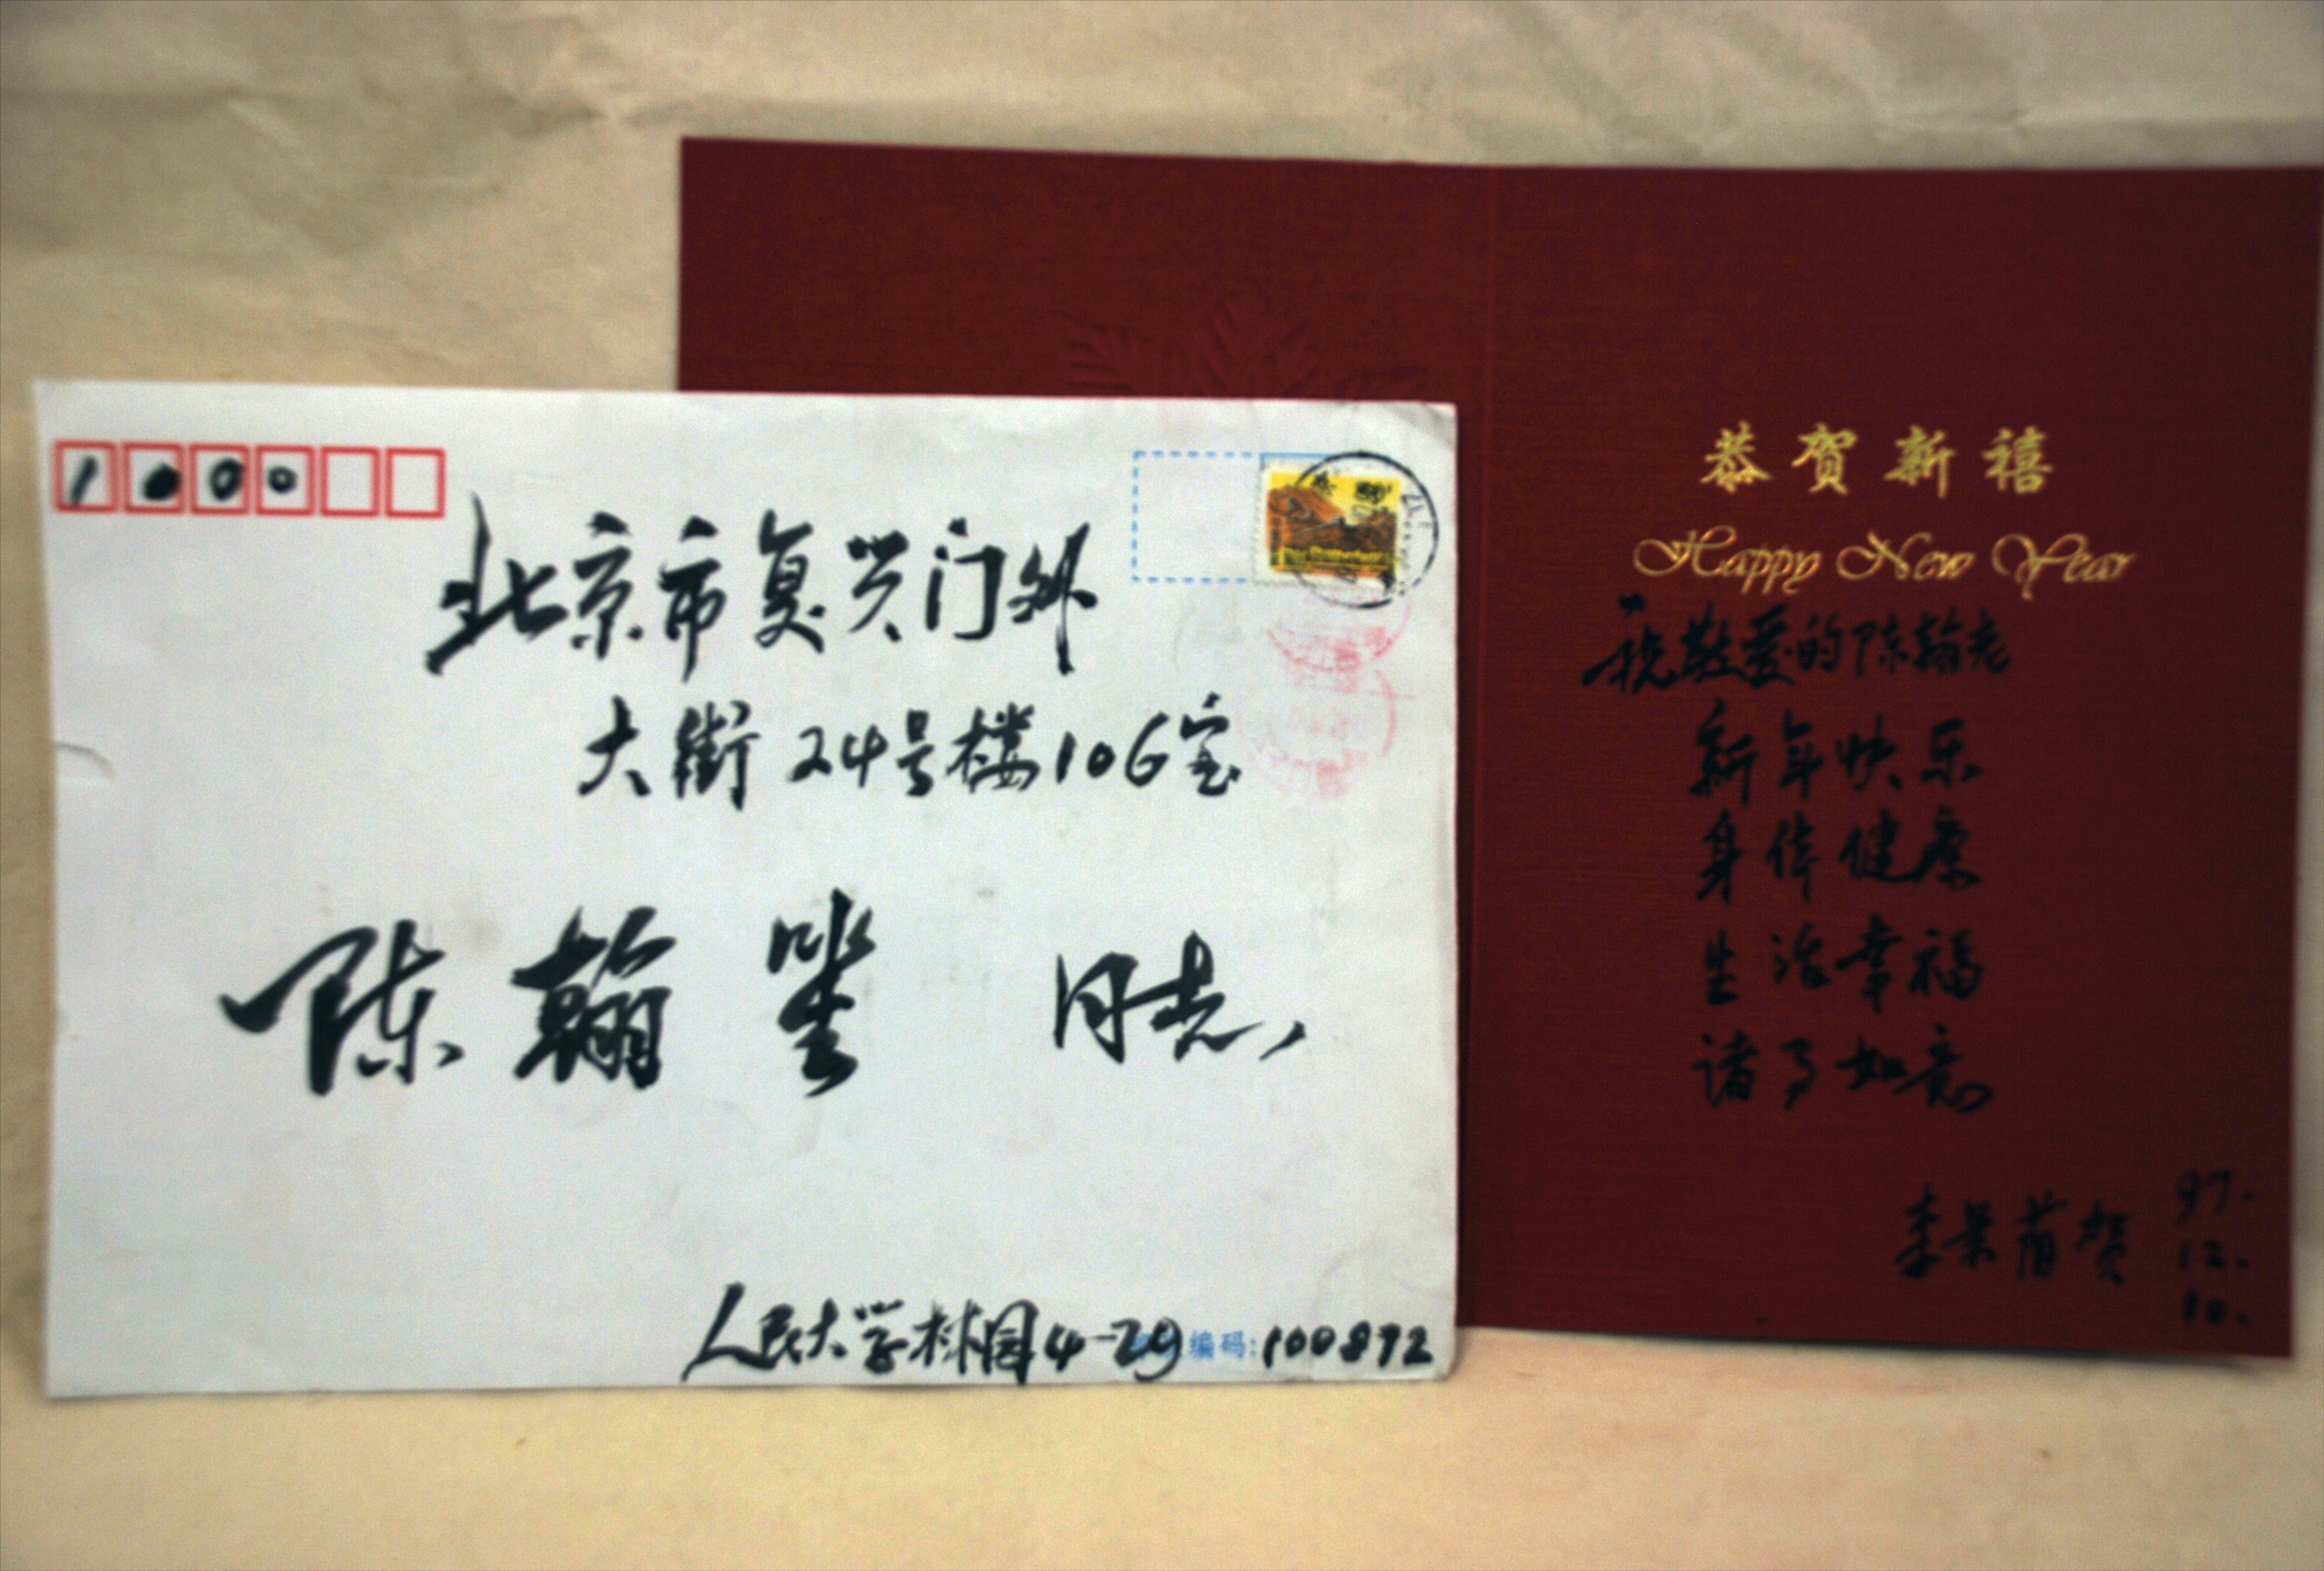 1000
北京市复兴门外
大街24号楼106室
陈翰笙 同志
人民大学林园4-29 编码:100872
恭贺新禧
Happy New Year
祝敬爱的陈翰老
新年快乐
身体健康
生活幸福
诸事如意
李景 贺
97.
12.
10.